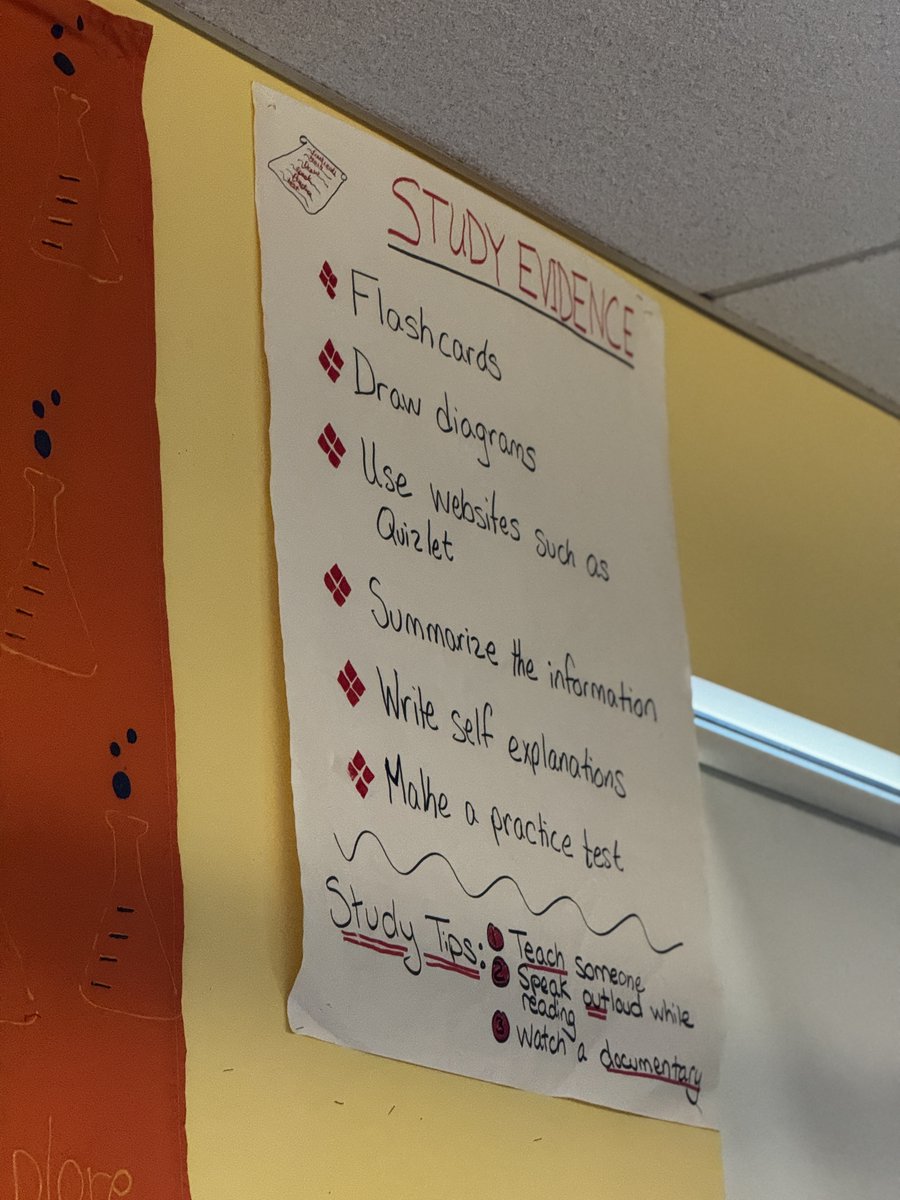 STUDY EVIDENCE
Flashcards
Draw diagrams
Use websites such as
Quizlet
Summarize the information
Write self explanations
Make a practice test
Study Tips:
1 Teach someone
2 Speak outloud while
reading
3 Watch a documentary
plore